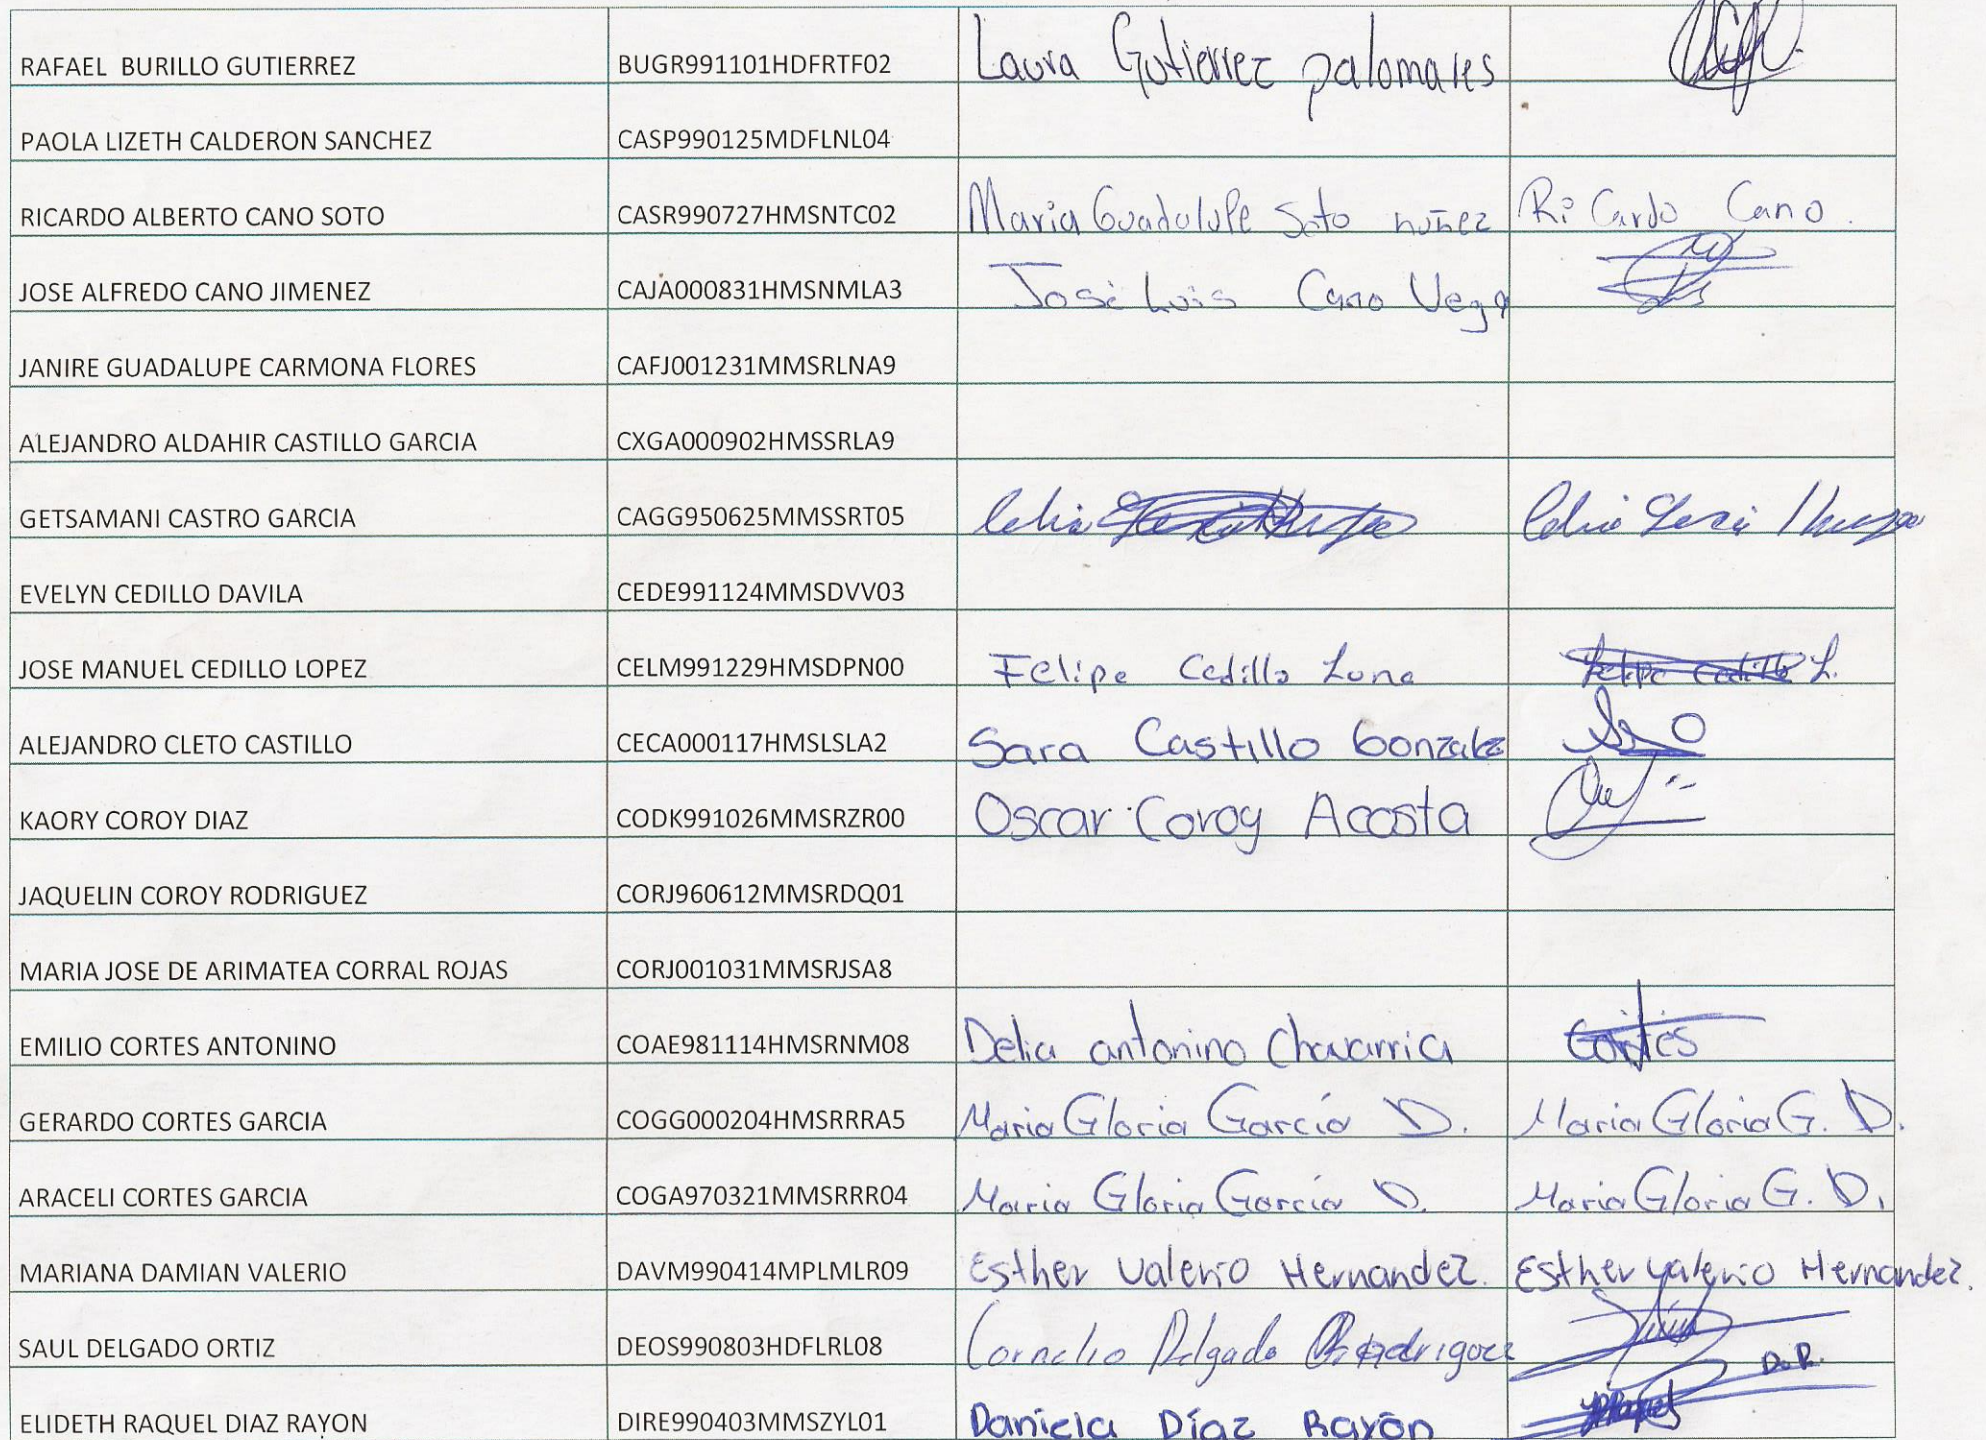 RAFAEL BURILLO GUTIERREZ BUGR991101HDFRTF02 Laura Gutierrez palomares
PAOLA LIZETH CALDERON SANCHEZ CASP990125MDFLNL04
RICARDO ALBERTO CANO SOTO CASR990727HMSNTC02 Maria Guadalupe Soto nuñez Ricardo Cano.
JOSE ALFREDO CANO JIMENEZ CAJA000831HMSNMLA3 José Luis Cano Vega
JANIRE GUADALUPE CARMONA FLORES CAFJ001231MMSRLNA9
ALEJANDRO ALDAHIR CASTILLO GARCIA CXGA000902HMSSRLA9
GETSAMANI CASTRO GARCIA CAGG950625MMSSRT05 Celia Celia
EVELYN CEDILLO DAVILA CEDE991124MMSDVV03
JOSE MANUEL CEDILLO LOPEZ CELM991229HMSDPN00 Felipe Cedillo Luna Felipe Cedillo L.
ALEJANDRO CLETO CASTILLO CECA000117HMSLSLA2 Sara Castillo Gonzalez
KAORY COROY DIAZ CODK991026MMSRZR00 Oscar Coroy Acosta
JAQUELIN COROY RODRIGUEZ CORJ960612MMSRDQ01
MARIA JOSE DE ARIMATEA CORRAL ROJAS CORJ001031MMSRJSA8
EMILIO CORTES ANTONINO COAE981114HMSRNM08 Delia antonino Chavarria Cortés
GERARDO CORTES GARCIA COGG000204HMSRRRA5 Maria Gloria García D. Maria Gloria G. D.
ARACELI CORTES GARCIA COGA970321MMSRRR04 Maria Gloria García D. Maria Gloria G. D.
MARIANA DAMIAN VALERIO DAVM990414MPLMLR09 Esther Valerio Hernandez. Esther Valerio Hernandez.
SAUL DELGADO ORTIZ DEOS990803HDFLRL08 Cornelio Delgado Rodriguez
ELIDETH RAQUEL DIAZ RAYON DIRE990403MMSZYL01 Daniela Díaz Rayón D.R.